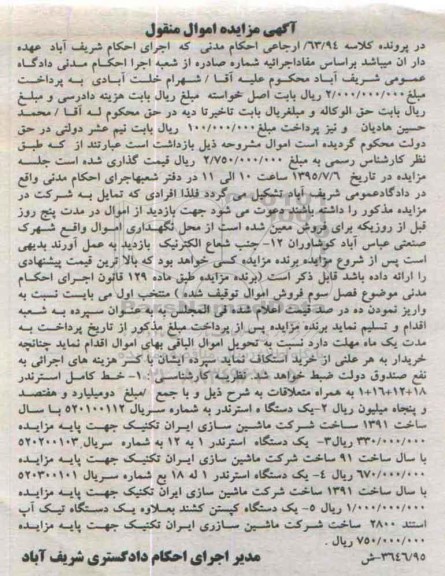 آگهی مزایده اموال منقول
در پرونده کلاسه ۶۳/۹۴/ ارجاعی احکام مدنی که اجرای احکام شریف آباد عهده
دار ان میباشد براساس مفاداجرائیه شماره صادره از شعبه اجرا احکام مدنی دادگاه
عمومی شریف آباد محکوم علیه آقا / شهرام خلت آبادی به پرداخت
مبلغ ۲/۰۰۰/۰۰۰/۰۰۰ ریال بابت اصل خواسته مبلغ ریال بابت هزینه دادرسی و مبلغ
ریال بابت حق الوکاله و مبلغریال بابت تاخیرتا دیه در حق محکوم له آقا / محمد
حسین هادیان و نیز پرداخت مبلغ ۱۰۰/۰۰۰/۰۰۰ ریال بابت نیم عشر دولتی در حق
دولت محکوم گردیده است اموال مشروحه ذیل بازداشت است عبارتند از که طبق
نظر کارشناس رسمی به مبلغ ۲/۷۵۰/۰۰۰/۰۰۰ ریال قیمت گذاری شده است جلسه
مزایده در تاریخ ۱۳۹۵/۷/۶ ساعت ۱۰ الی ۱۱ در دفتر شعبهاجرای احکام مدنی واقع
در دادگادعمومی شریف آباد تشکیل می گردد فلذا افرادی که تمایل به شرکت در
مزایده مذکور را داشته باشند دعوت می شود جهت بازدید از اموال در مدت پنج روز
قبل از روزیکه برای فروش معین شده است از محل نگهداری اموال واقع شهرک
صنعتی عباس آباد کوشاوران ۱۲- جنب شماع الکترنیک بازدید به عمل آورند بدیهی
است پس از شروع مزایده برنده مزایده کسی خواهد بود که بالا ترین قیمت پیشنهادی
را ارائه داده باشد قابل ذکر است (برنده مزایده طبق ماده ۱۲۹ قانون اجرای احکام
مدنی موضوع فصل سوم فروش اموال توقیف شده ) منتخب اول می بایست نسبت به
واریز نمودن ده در صد قیمت اعلام شده فی المجلس به به عنوان سپرده به شعبه
اقدام و تسلیم نماید برنده مزایده پس از پرداخت مبلغ مذکور از تاریخ پرداخت به
مدت یک ماه مهلت دارد نسبت به تحویل اموال الباقی بهای اموال اقدام نماید چنانچه
خریدار به هر علتی از خرید استنکاف نماید سپرده ایشان با کسر هزینه های اجرائی به
نفع صندوق دولت ضبط خواهد شد. نظریه کارشناسی : ۱- خط کامل استرندر
۱۸+۱۲+۱+۱۶ به همراه متعلاقات به شرح ذیل و با جمع /مبلغ دومیلیارد و هفتصد
و پنجاه میلیون ریال ۲-یک دستگاه ء استرندر به شماره سریال ۵۲۰۱۰۰۱۱۲ با سال
ساخت ۱۳۹۱ ساخت شرکت ماشین سازی ایران تکنیک جهت پایه مزایده
۳۳۰/۰۰۰/۰۰۰ ریال۳- یک دستگاه استرندر ۱ به ۱۲ به شماره سریال ۵۲۰۲۰۰۱۰۳
با سال ساخت ۹۱ ساخت شرکت ماشین سازی ایران تکنیک جهت پایه مزایده
۶۷۰/۰۰۰/۰۰۰ ریال ۴- یک دستگاه استرندر ۱ له ۱۸ بع شماره سریال ۵۲۰۳۰۰۱۰۱
با سال ساخت ۱۳۹۱ ساخت شرکت ماشین سازی ایران تکنیک جهت پایه مزایده
۱/۰۰۰/۰۰۰/۰۰۰ ریال ۵- یک دستگاه کپستن کشند بعلاوه یک دستگاه تیک آپ
استند ۲۸۰۰ ساخت شرکت ماشین سازری ایران تکنیک جهت پایه مزایده
۷۵۰/۰۰۰/۰۰۰ ریال .
۳۶۴۶/۹۵-ش مدیر اجرای احکام دادگستری شریف آباد